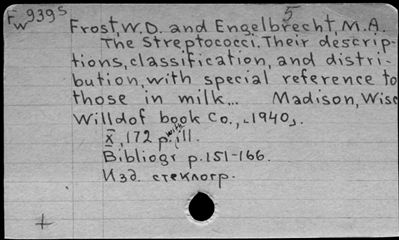 Fw939 S
5
Frost, W.D. and Engelbrecht, M.A.
The Streptococci. Their descrip-
tions, classification, and distri-
bution, with special reference to
those in milk... Madison, Wisc
Willdof book Co., [1940].
x, 172 p. with ill.
Bibliogr p. 151-166.
Изд. стеклогр.
+